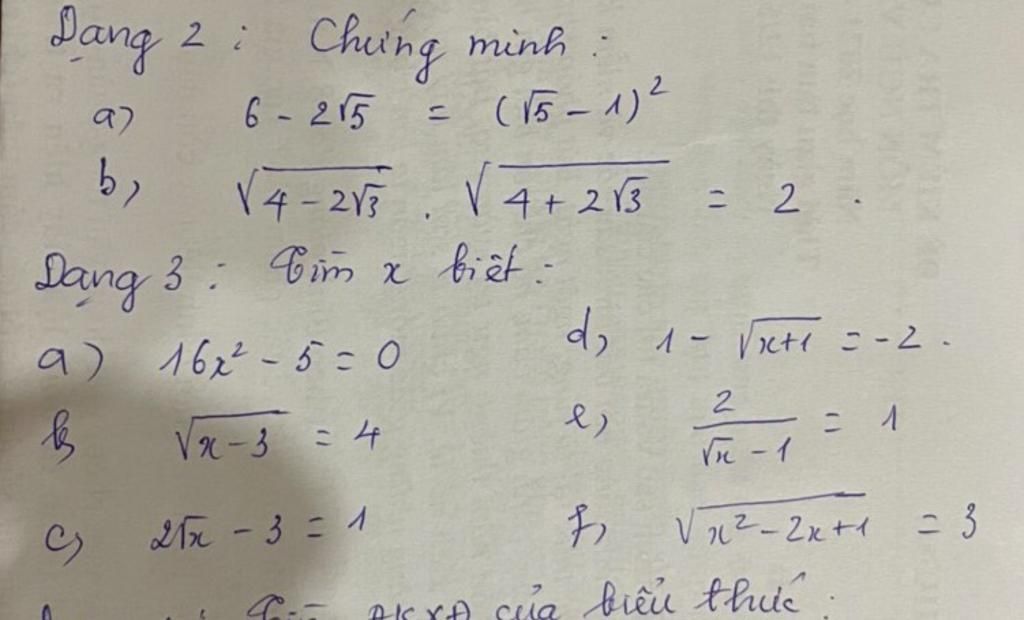 Dạng 2 : Chứng minh :
a) 6 - 2√5 = (√5 - 1)²
b, √(4 - 2√3) . √(4 + 2√3) = 2 .
Dạng 3 : Tìm x biết :
a) 16x² - 5 = 0
b √(x - 3) = 4
c, 2√x - 3 = 1
d, 1 - √(x+1) = -2 .
e, 2/(√x - 1) = 1
f, √(x² - 2x + 1) = 3
ĐKXĐ của biểu thức :